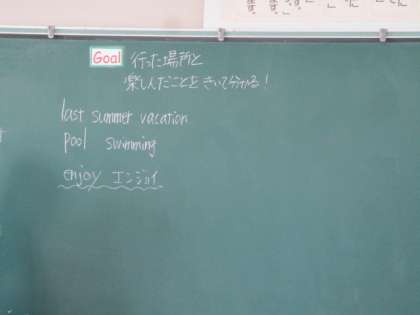 Goal 行った場所と
楽しんだことをきいて分かる!
last summer vacation
pool swimming
enjoy エンジョイ